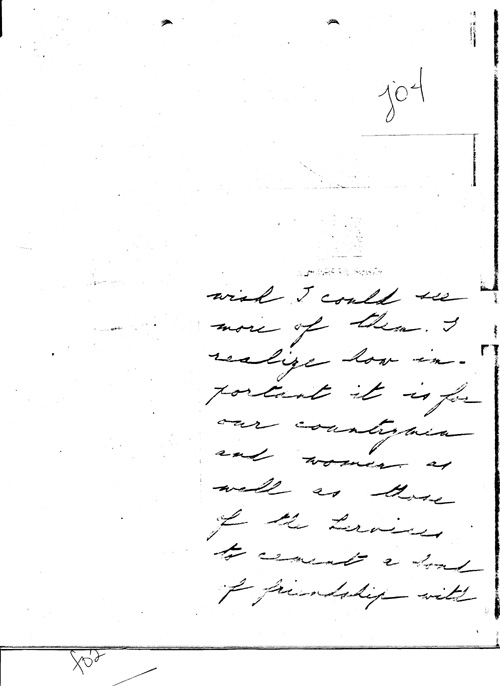 j04
wish I could see
more of them. I
realize how im-
portant it is for
our countrymen
and women as
well as those
of the Services
to cement a bond
of friendship with
f02